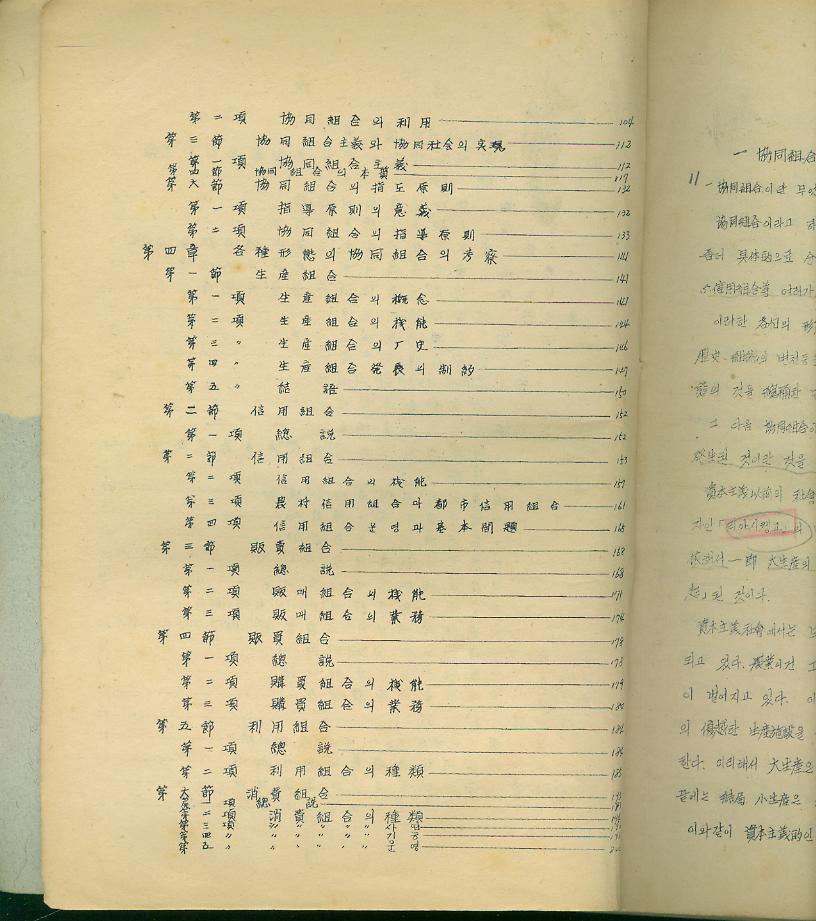 第二項 協同組合의 利用 104
第三節 協同組合主義와 協同社会의 实現 112
第一項 協同組合主義 112
第四節 協同組合의 本質 117
第六節 協同組合의 指도原則 132
第一項 指導原則의 意義 132
第二項 協同組合의 指導原則 133
第四章 各種形態의 協同組合의 考察 141
第一節 生産組合 141
第一項 生産組合의 概念 141
第二項 生産組合의 機能 144
第三〃 生産組合의 厂史 146
第四〃 生産組合発展의 制約 147
第五〃 結語 150
第二節 信用組合 152
第一項 總説 152
第二節 信用組合 153
第二項 信用組合의 機能 157
第三項 農村信用組合과 都市信用組合 161
第四項 信用組合운영과 基本問題 165
第三節 販賣組合 168
第一項 總説 168
第二項 販매組合의 機能 171
第三項 販매組合의 業務 174
第四節 購買組合 178
第一項 總説 178
第二項 購買組合의 機能 179
第三項 購買組合의 業務 180
第五節 利用組合 186
第一項 總説 186
第二項 利用組合의 種類
第六節 消費組合
第一項 總説
第二項 消費組合의 種類
第三項 〃 〃 〃 사업
第四〃 〃 〃 〃
第五〃 〃 〃 운영
一 協同組合
一 協同組合이란 무엇
協同組合이라고
좀더 具体的으로
信用組合等 여러가
이러한 各각의 形
歷史
그 다음 協同組合이
発生된 것이란 것을
資本主義以前의 社會
一即 大生産의
된 것이다.
資本主義社會에서는
되고 있다. 農業이건
이 벌어지고 있다.
의 優越한 生産施設을
한다. 이리해서 大生産은
끝에는 結局 小生産은
이와같이 資本主義的인